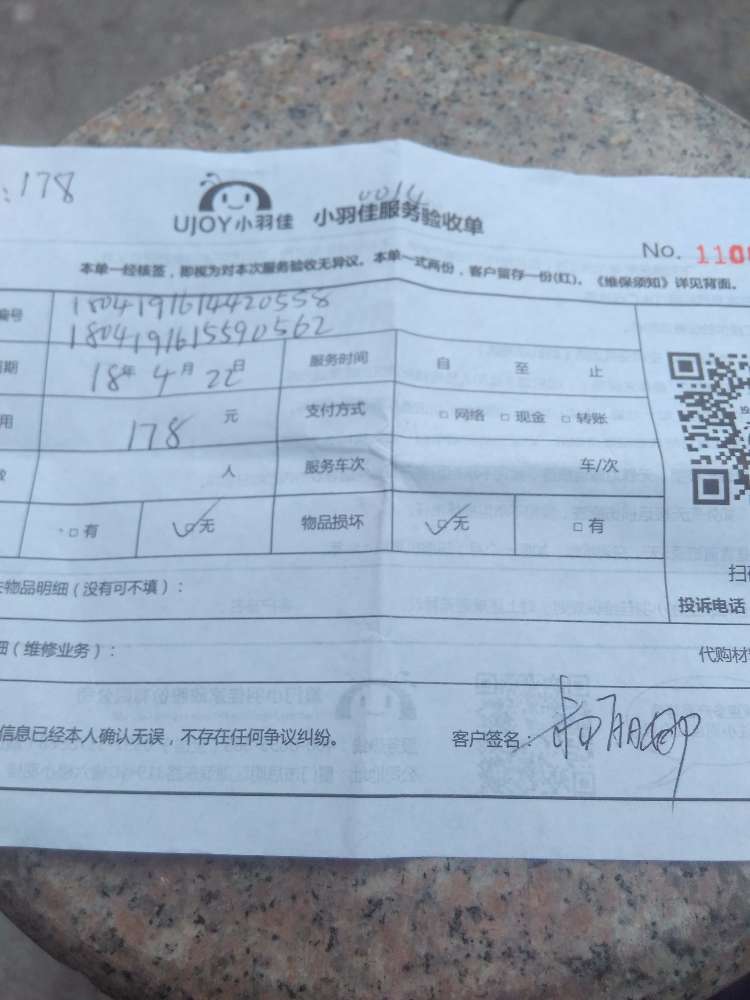 :178
0014
UJOY小羽佳 小羽佳服务验收单
No. 1108
本单一经核签，即视为对本次服务验收无异议。本单一式两份，客户留存一份(红)。《维保须知》详见背面。
编号 1804191614420558
1804191615590562
期 18年 4月 22日 服务时间 自 至 止
用 178 元 支付方式 □ 网络 □ 现金 □ 转账
数 人 服务车次 车/次
□ 有 □ 无 物品损坏 □ 无 □ 有
物品明细（没有可不填）： 扫
投诉电话
细（维修业务）： 代购材
信息已经本人确认无误，不存在任何争议纠纷。 客户签名：